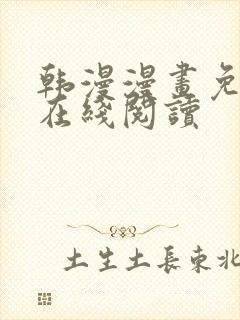 韩漫漫畫免
在綫閱讀
土生土長東北